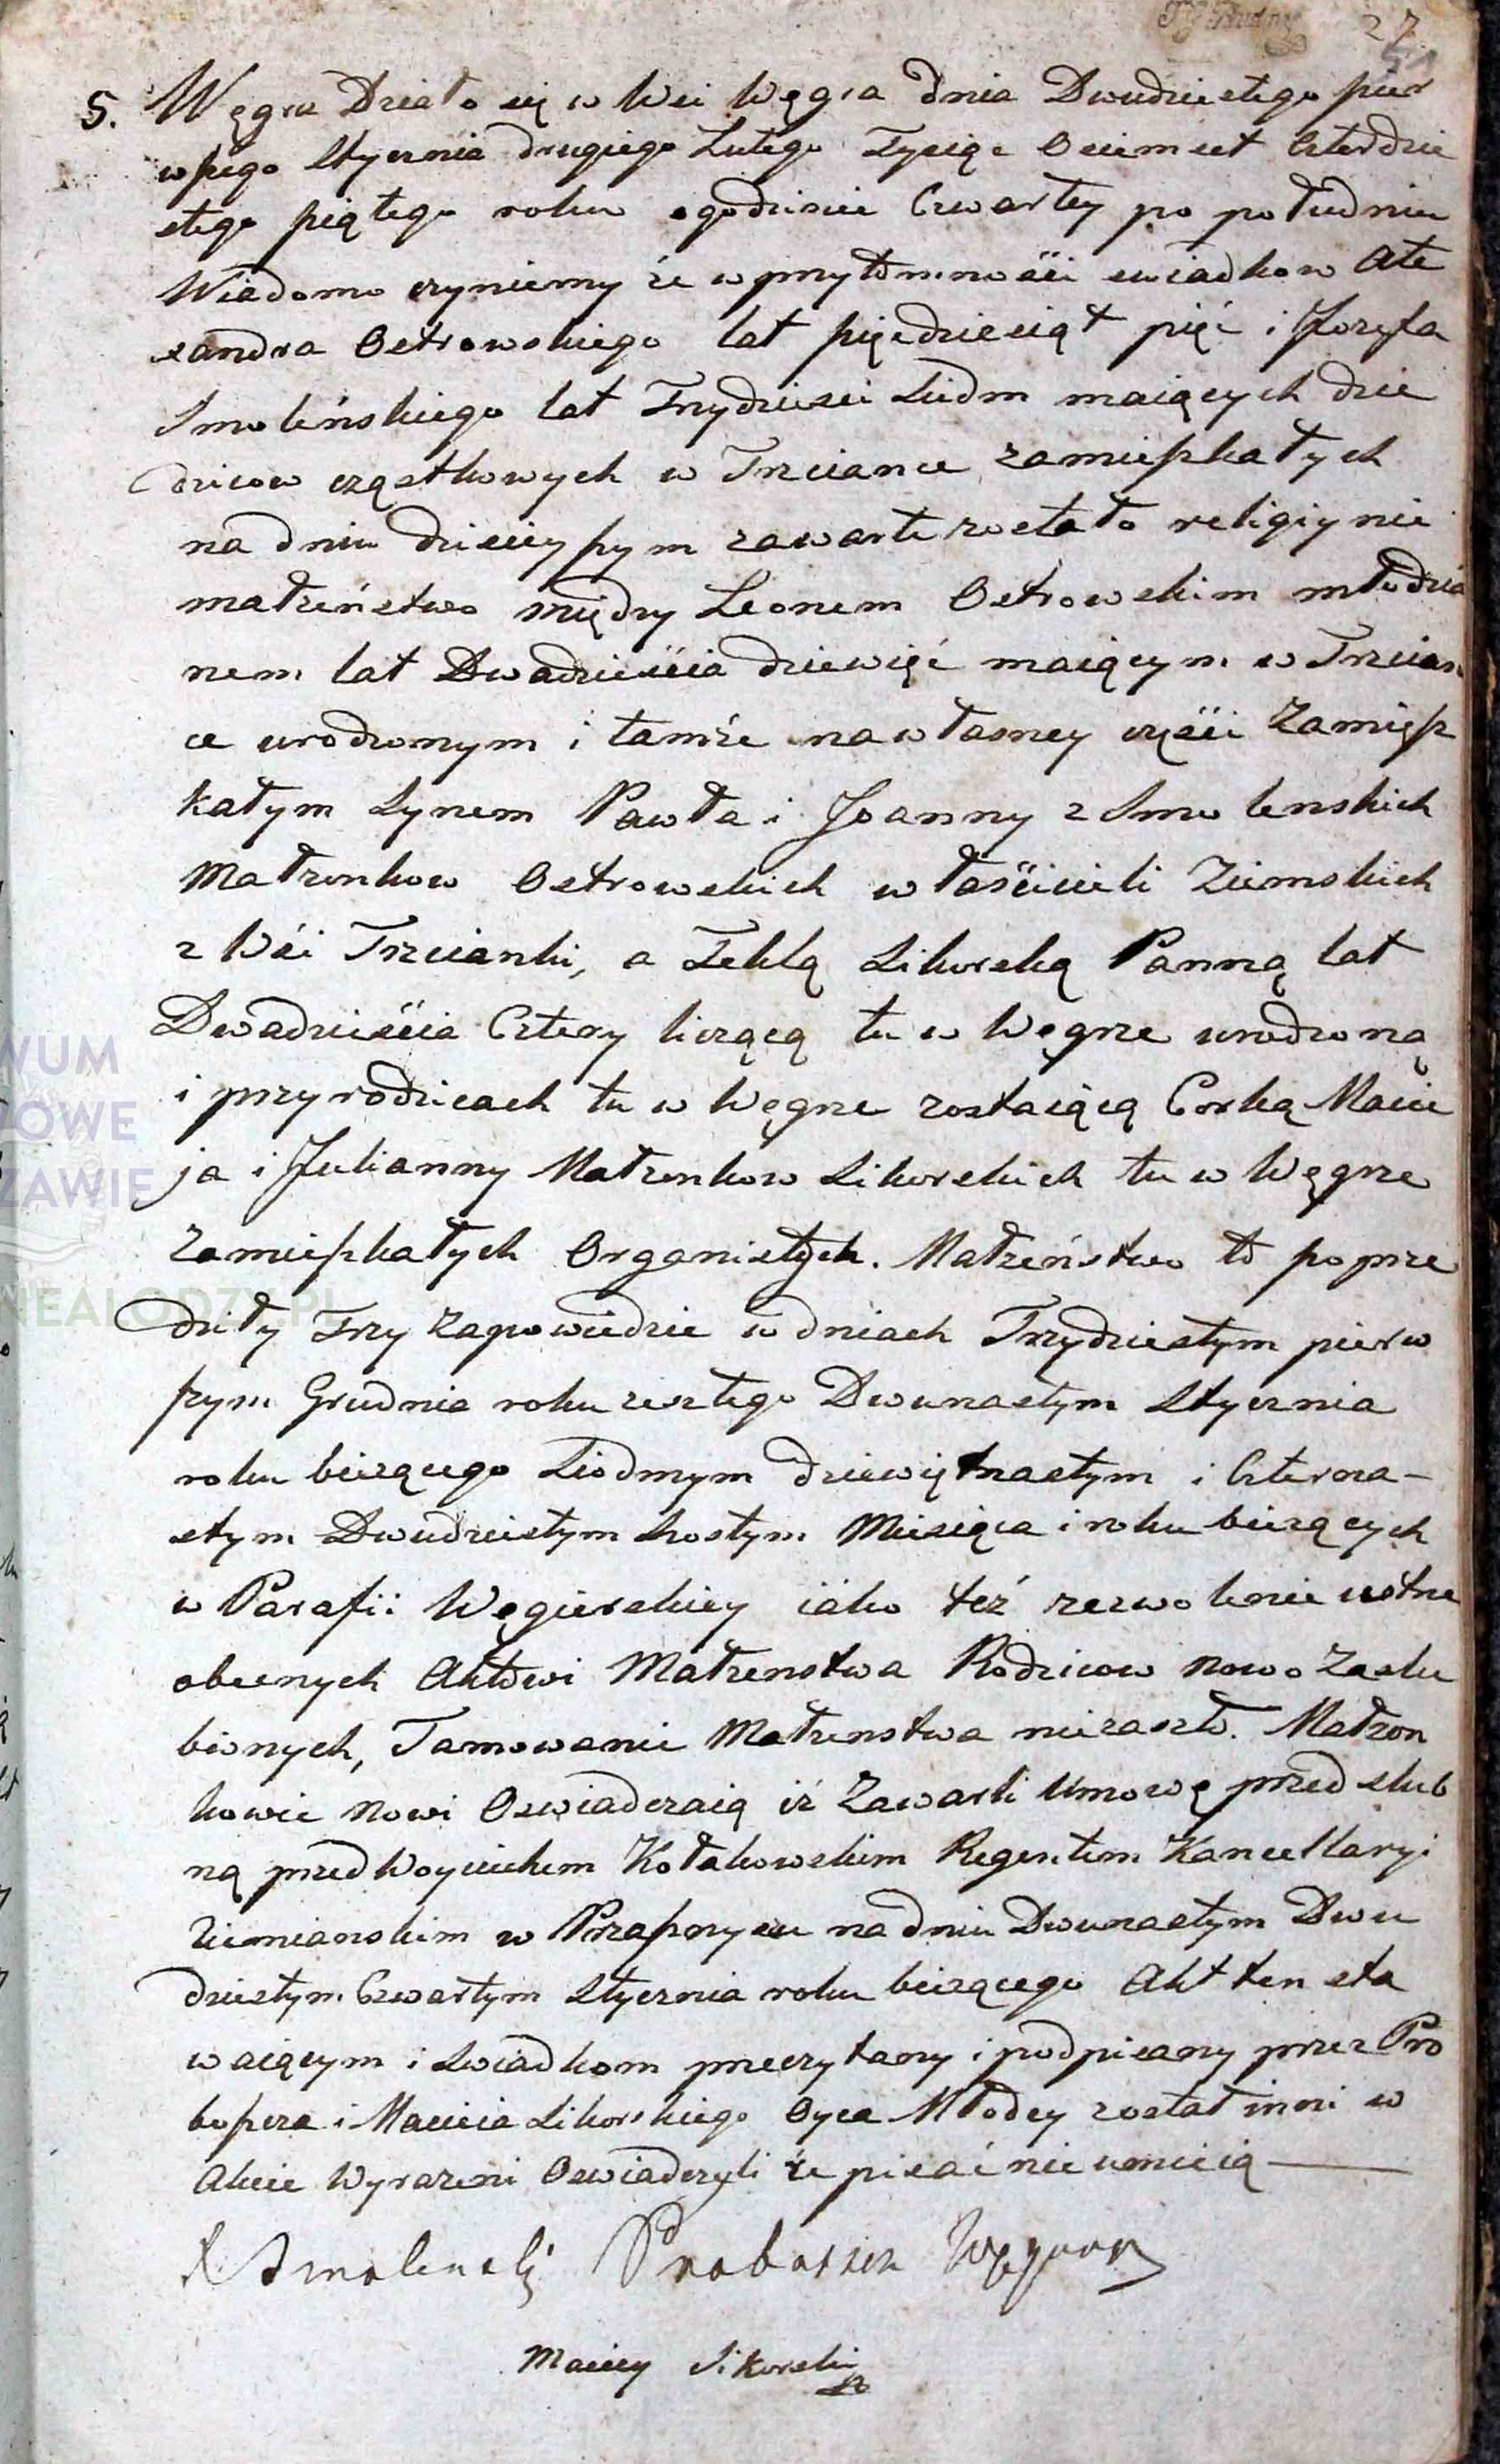 27
5. Węgra Działo się w Wsi Węgra dnia Dwudziestego pier
wszego Stycznia drugiego Lutego Tysiąc Osiemset Czterdzie
stego piątego roku o godzinie Czwartey po południu
Wiadomo czyniemy że w przytomności swiadkow Ale
xandra Ostrowskiego lat pięćdziesiąt pięć i Jozefa
Smoleńskiego lat Trzydzieści Siedm maiących dzie
dzicow cząstkowych w Trzciance zamieszkałych
na dniu dzisieyszym zawarte zostało religiynie
małżeństwo między Leonem Ostrowskim młodzia
nem lat Dwadzieścia dziewięć maiącym w Trzcian
ce urodzonym i tamże na własney części Zamiesz
kałym Synem Pawła i Joanny z Smolenskich
Małzonkow Ostrowskich właścicieli Ziemskich
z Wsi Trzcianki, a Teklą Sikorską Panną lat
Dwadzieścia Cztery liczącą tu w Węgrze urodzoną
i przy rodzicach tu w Węgrze zostaiącą Corką Macie
ja i Julianny Małzonkow Sikorskich tu w Węgrze
Zamieszkałych Organistych. Małżeństwo to poprze
dziły Trzy Zapowiedzie w dniach Trzydziestym pierw
szym Grudnia roku zeszłego Dwunastym Stycznia
roku bieżącego Siodmym dziewiętnastym i Czterna-
stym Dwudziestym szostym Miesiąca i roku bieżących
w Parafii Węgierskiey iako też zezwolenie ustne
obecnych Aktowi Małżenstwa Rodzicow Nowo Zaslu
bionych, Tamowanie Małżenstwa nie zaszło. Małzon
kowie Nowi Oswiadczaią iż Zawarli Umowę przed slub
ną przed Woyciechem Kołakowskim Regentem Kancellaryi
Ziemianskim w Przasnyszu na dniu Dwunastym Dwu
dziestym Czwartym Stycznia roku bieżącego Akt ten sta
waiącym i Swiadkom przeczytany i podpisany przez Pro
boszcza i Macieia Sikorskiego Oyca Młodey został inni w
Akcie Wyrażeni Oswiadczyli że pisać nie umieią
X Smolenski Proboszcz Węgrow
Maciey Sikorski